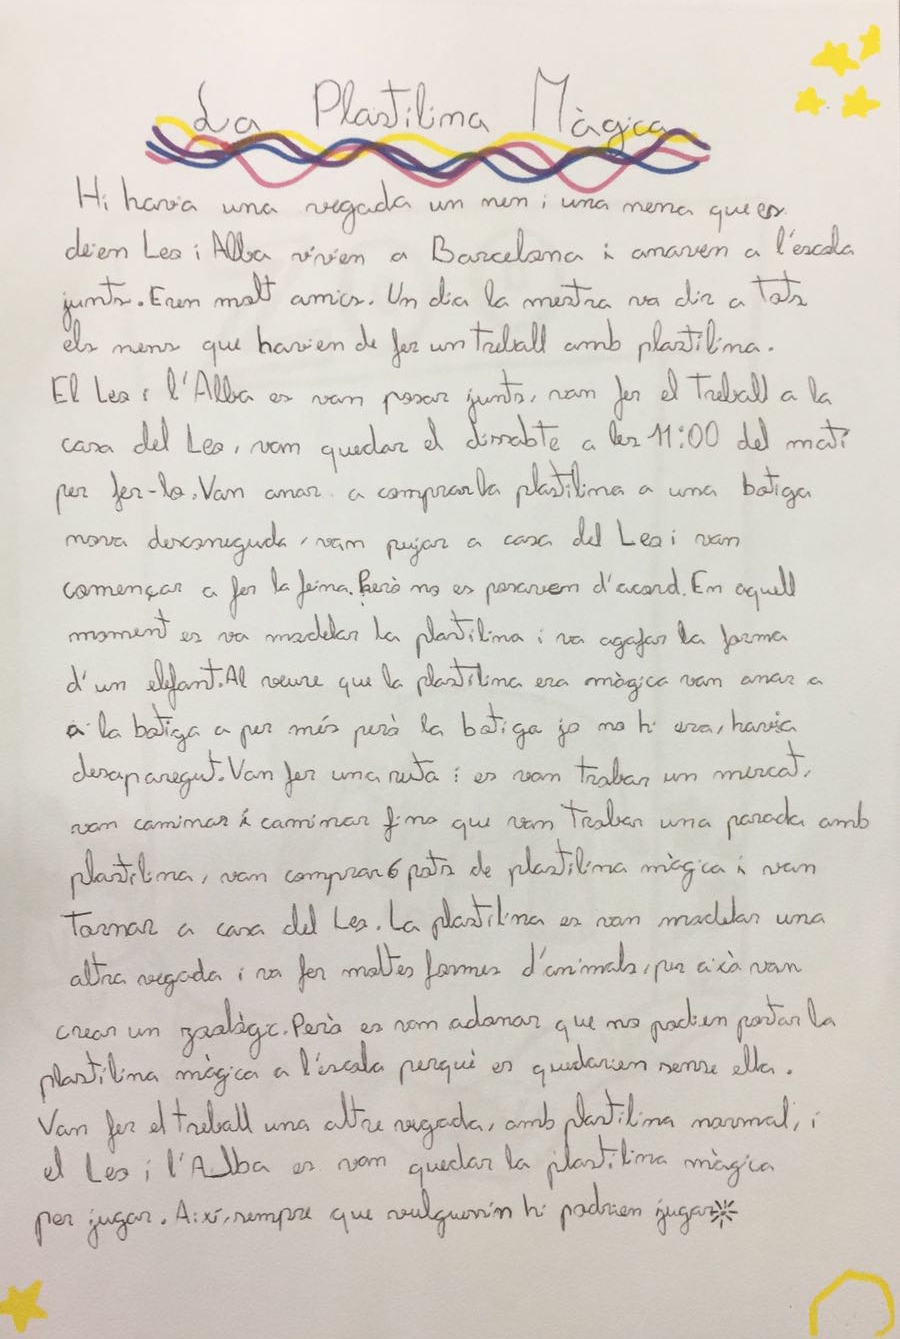 La Plastilina Màgica
Hi havia una vegada un nen i una nena que es
deien Leo i Alba vivien a Barcelona i anaven a l'escola
junts. Eren molt amics. Un dia la mestra va dir a tots
els nens que havien de fer un treball amb plastilina.
El Leo i l'Alba es van posar junts, van fer el treball a la
casa del Leo, vam quedar el dissabte a les 11:00 del matí
per fer-lo. Van anar a comprar la plastilina a una botiga
nova desconeguda, van pujar a casa del Leo i van
començar a fer la feina. Però no es posaven d'acord. En aquell
moment es va modelar la plastilina i va agafar la forma
d'un elefant. Al veure que la plastilina era màgica van anar a
a la botiga a per més però la botiga jo no hi era, havia
desaparegut. Van fer una ruta i es van trobar un mercat,
van caminar i caminar fins que van trobar una parada amb
plastilina, van comprar 6 pots de plastilina màgica i van
tornar a casa del Leo. La plastilina es van modelar una
altra vegada i va fer moltes formes d'animals, per això van
crear un zoològic. Però es vam adonar que no podien portar la
plastilina màgica a l'escola perquè es quedarien sense ella.
Van fer el treball una altre vegada, amb plastilina normal, i
el Leo i l'Alba es van quedar la plastilina màgica
per jugar. Així, sempre que vulguessin hi podrien jugar